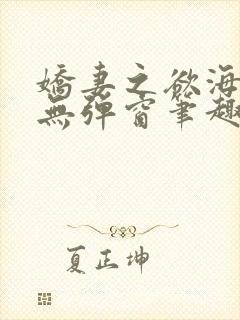 嬌妻之欲海
無彈窗筆趣
夏正坤